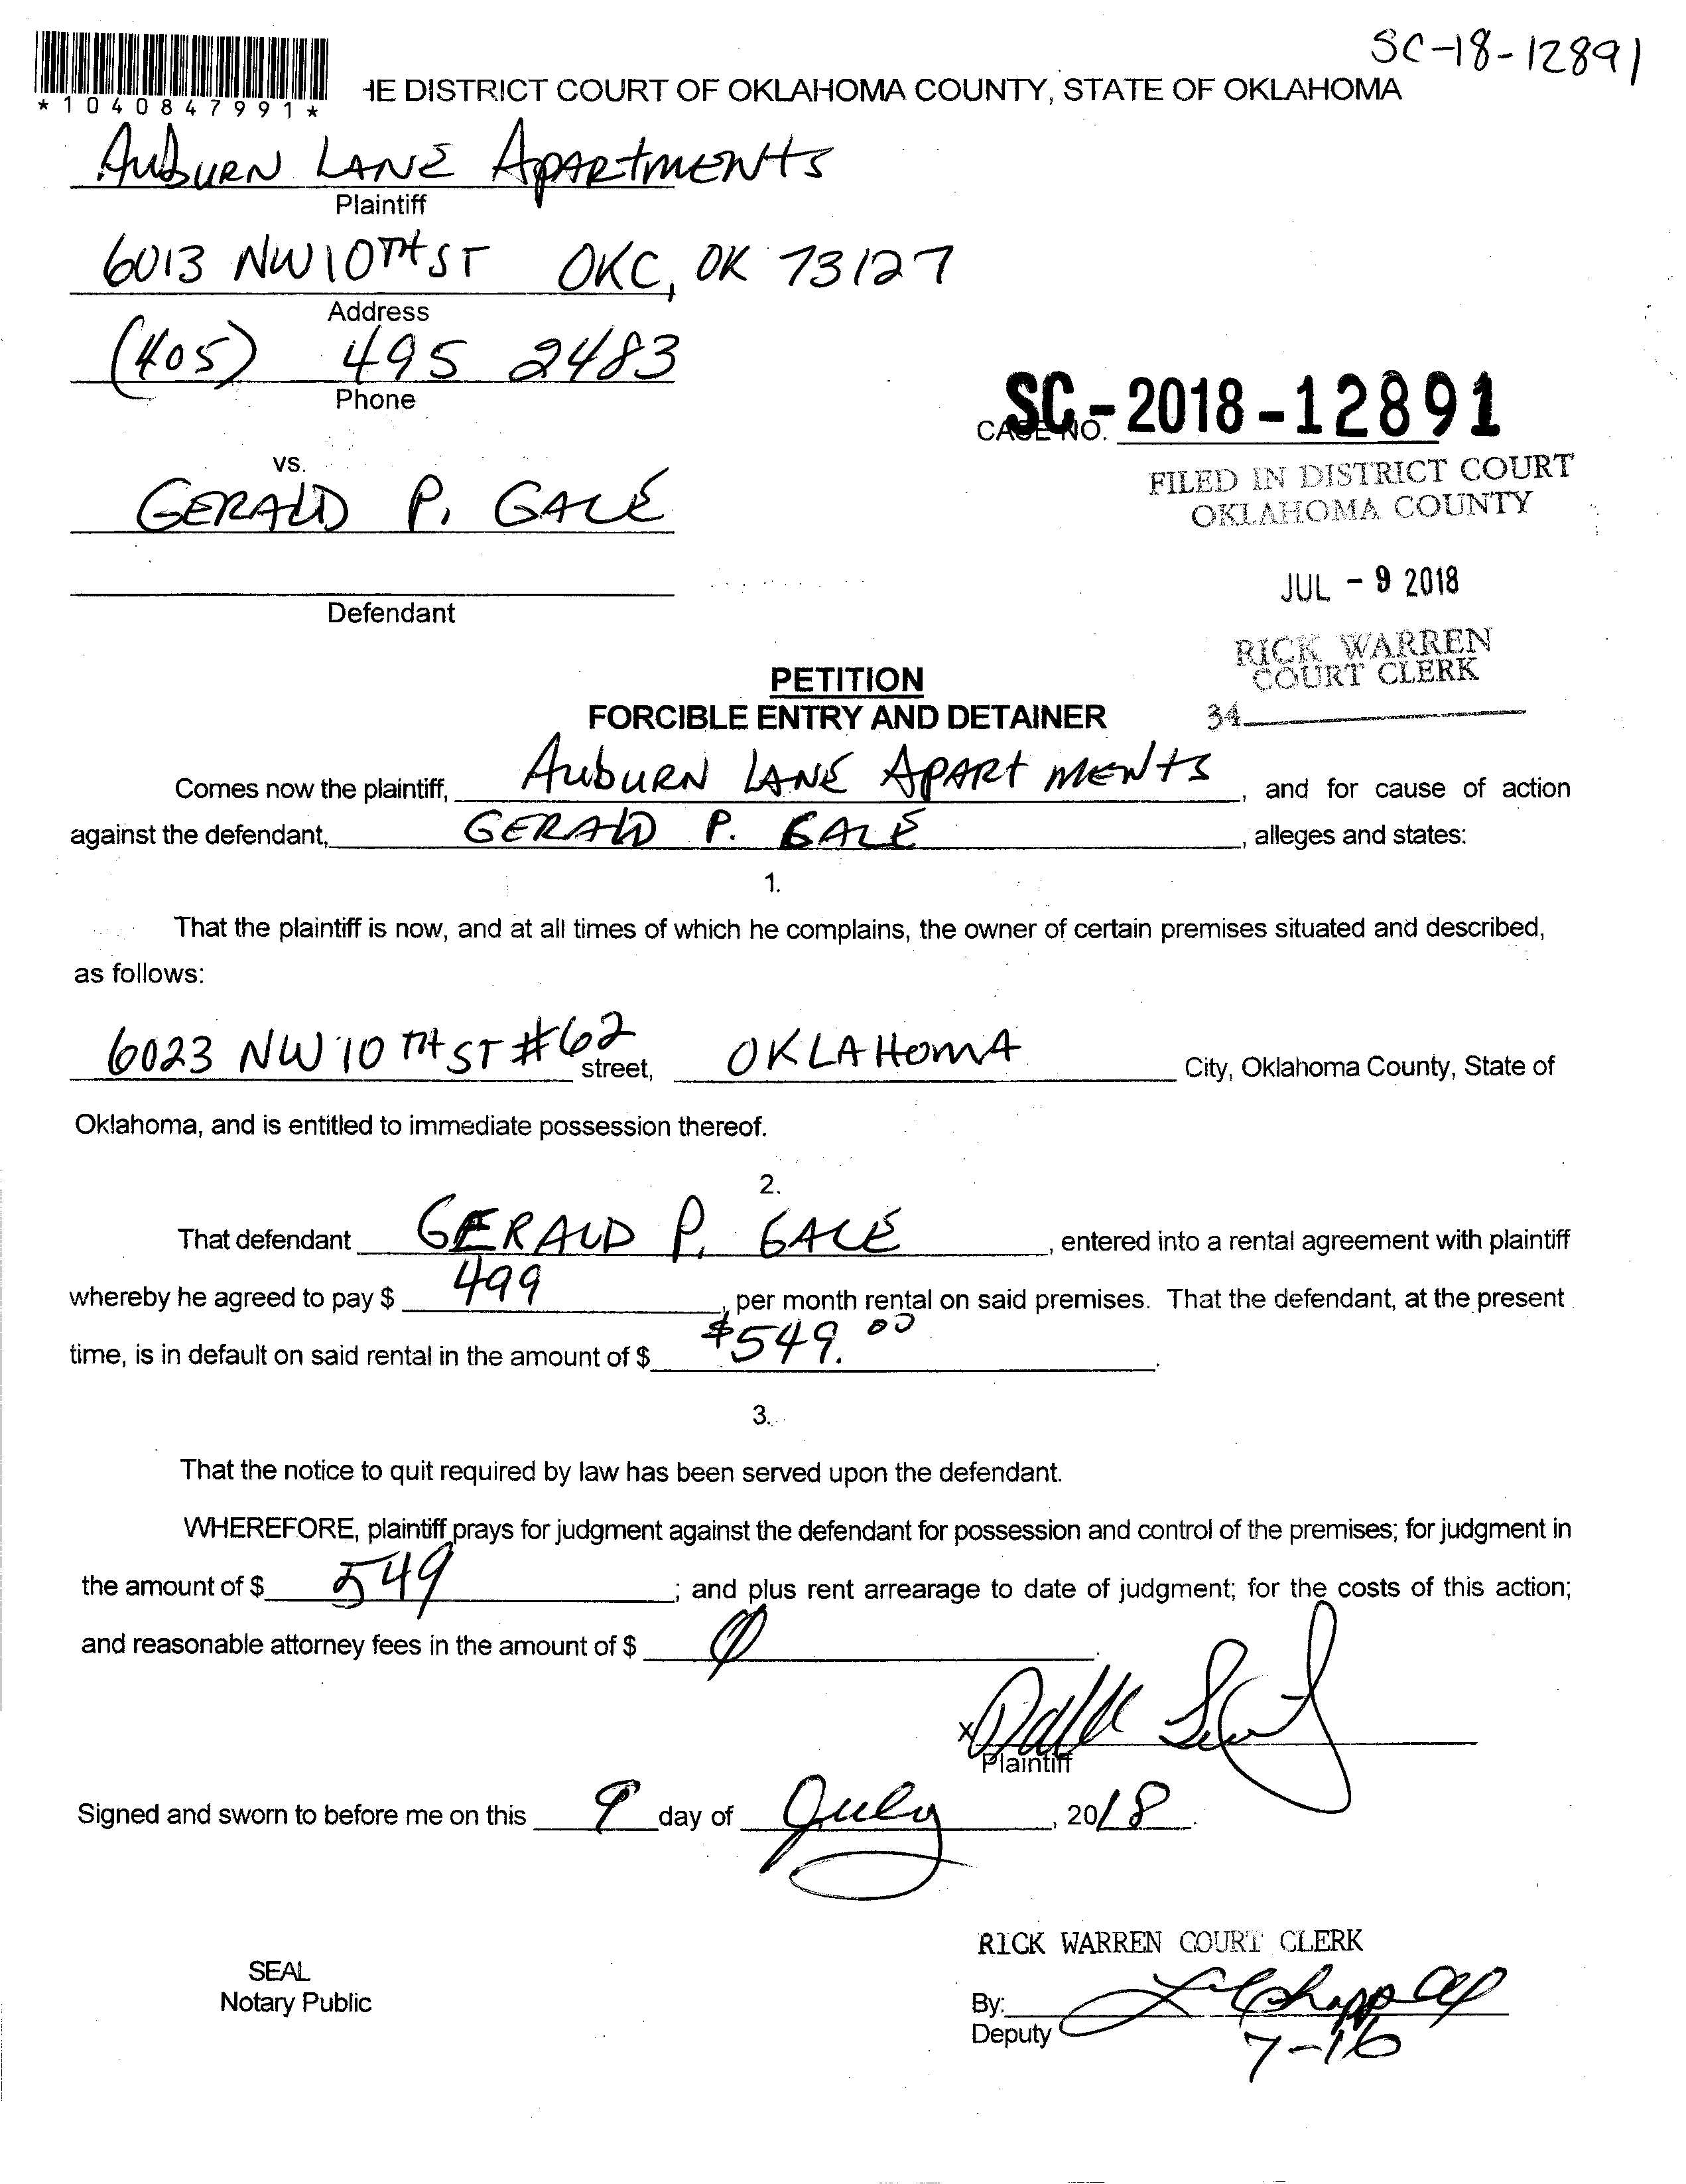 SC-18-12891
*1040847991*
HE DISTRICT COURT OF OKLAHOMA COUNTY, STATE OF OKLAHOMA
AUBURN LANE APARTMENTS
Plaintiff
6013 NW 10TH ST OKC, OK 73127
Address
(405) 495 2483
Phone
SC-2018-12891
CASE NO.
vs.
FILED IN DISTRICT COURT
OKLAHOMA COUNTY
GERALD P. GALE
JUL - 9 2018
Defendant
RICK WARREN
COURT CLERK
34
PETITION
FORCIBLE ENTRY AND DETAINER
Comes now the plaintiff, AUBURN LANE APARTMENTS, and for cause of action
against the defendant, GERALD P. GALE, alleges and states:
1.
That the plaintiff is now, and at all times of which he complains, the owner of certain premises situated and described,
as follows:
6023 NW 10TH ST #62 street, OKLAHOMA City, Oklahoma County, State of
Oklahoma, and is entitled to immediate possession thereof.
2.
That defendant GERALD P. GALE, entered into a rental agreement with plaintiff
whereby he agreed to pay $ 499, per month rental on said premises. That the defendant, at the present
time, is in default on said rental in the amount of $ $549.00.
3.
That the notice to quit required by law has been served upon the defendant.
WHEREFORE, plaintiff prays for judgment against the defendant for possession and control of the premises; for judgment in
the amount of $ 549; and plus rent arrearage to date of judgment; for the costs of this action;
and reasonable attorney fees in the amount of $ 0.
X
Plaintiff
Signed and sworn to before me on this 9 day of July, 2018.
RICK WARREN COURT CLERK
SEAL
Notary Public
By:
Deputy
7-16